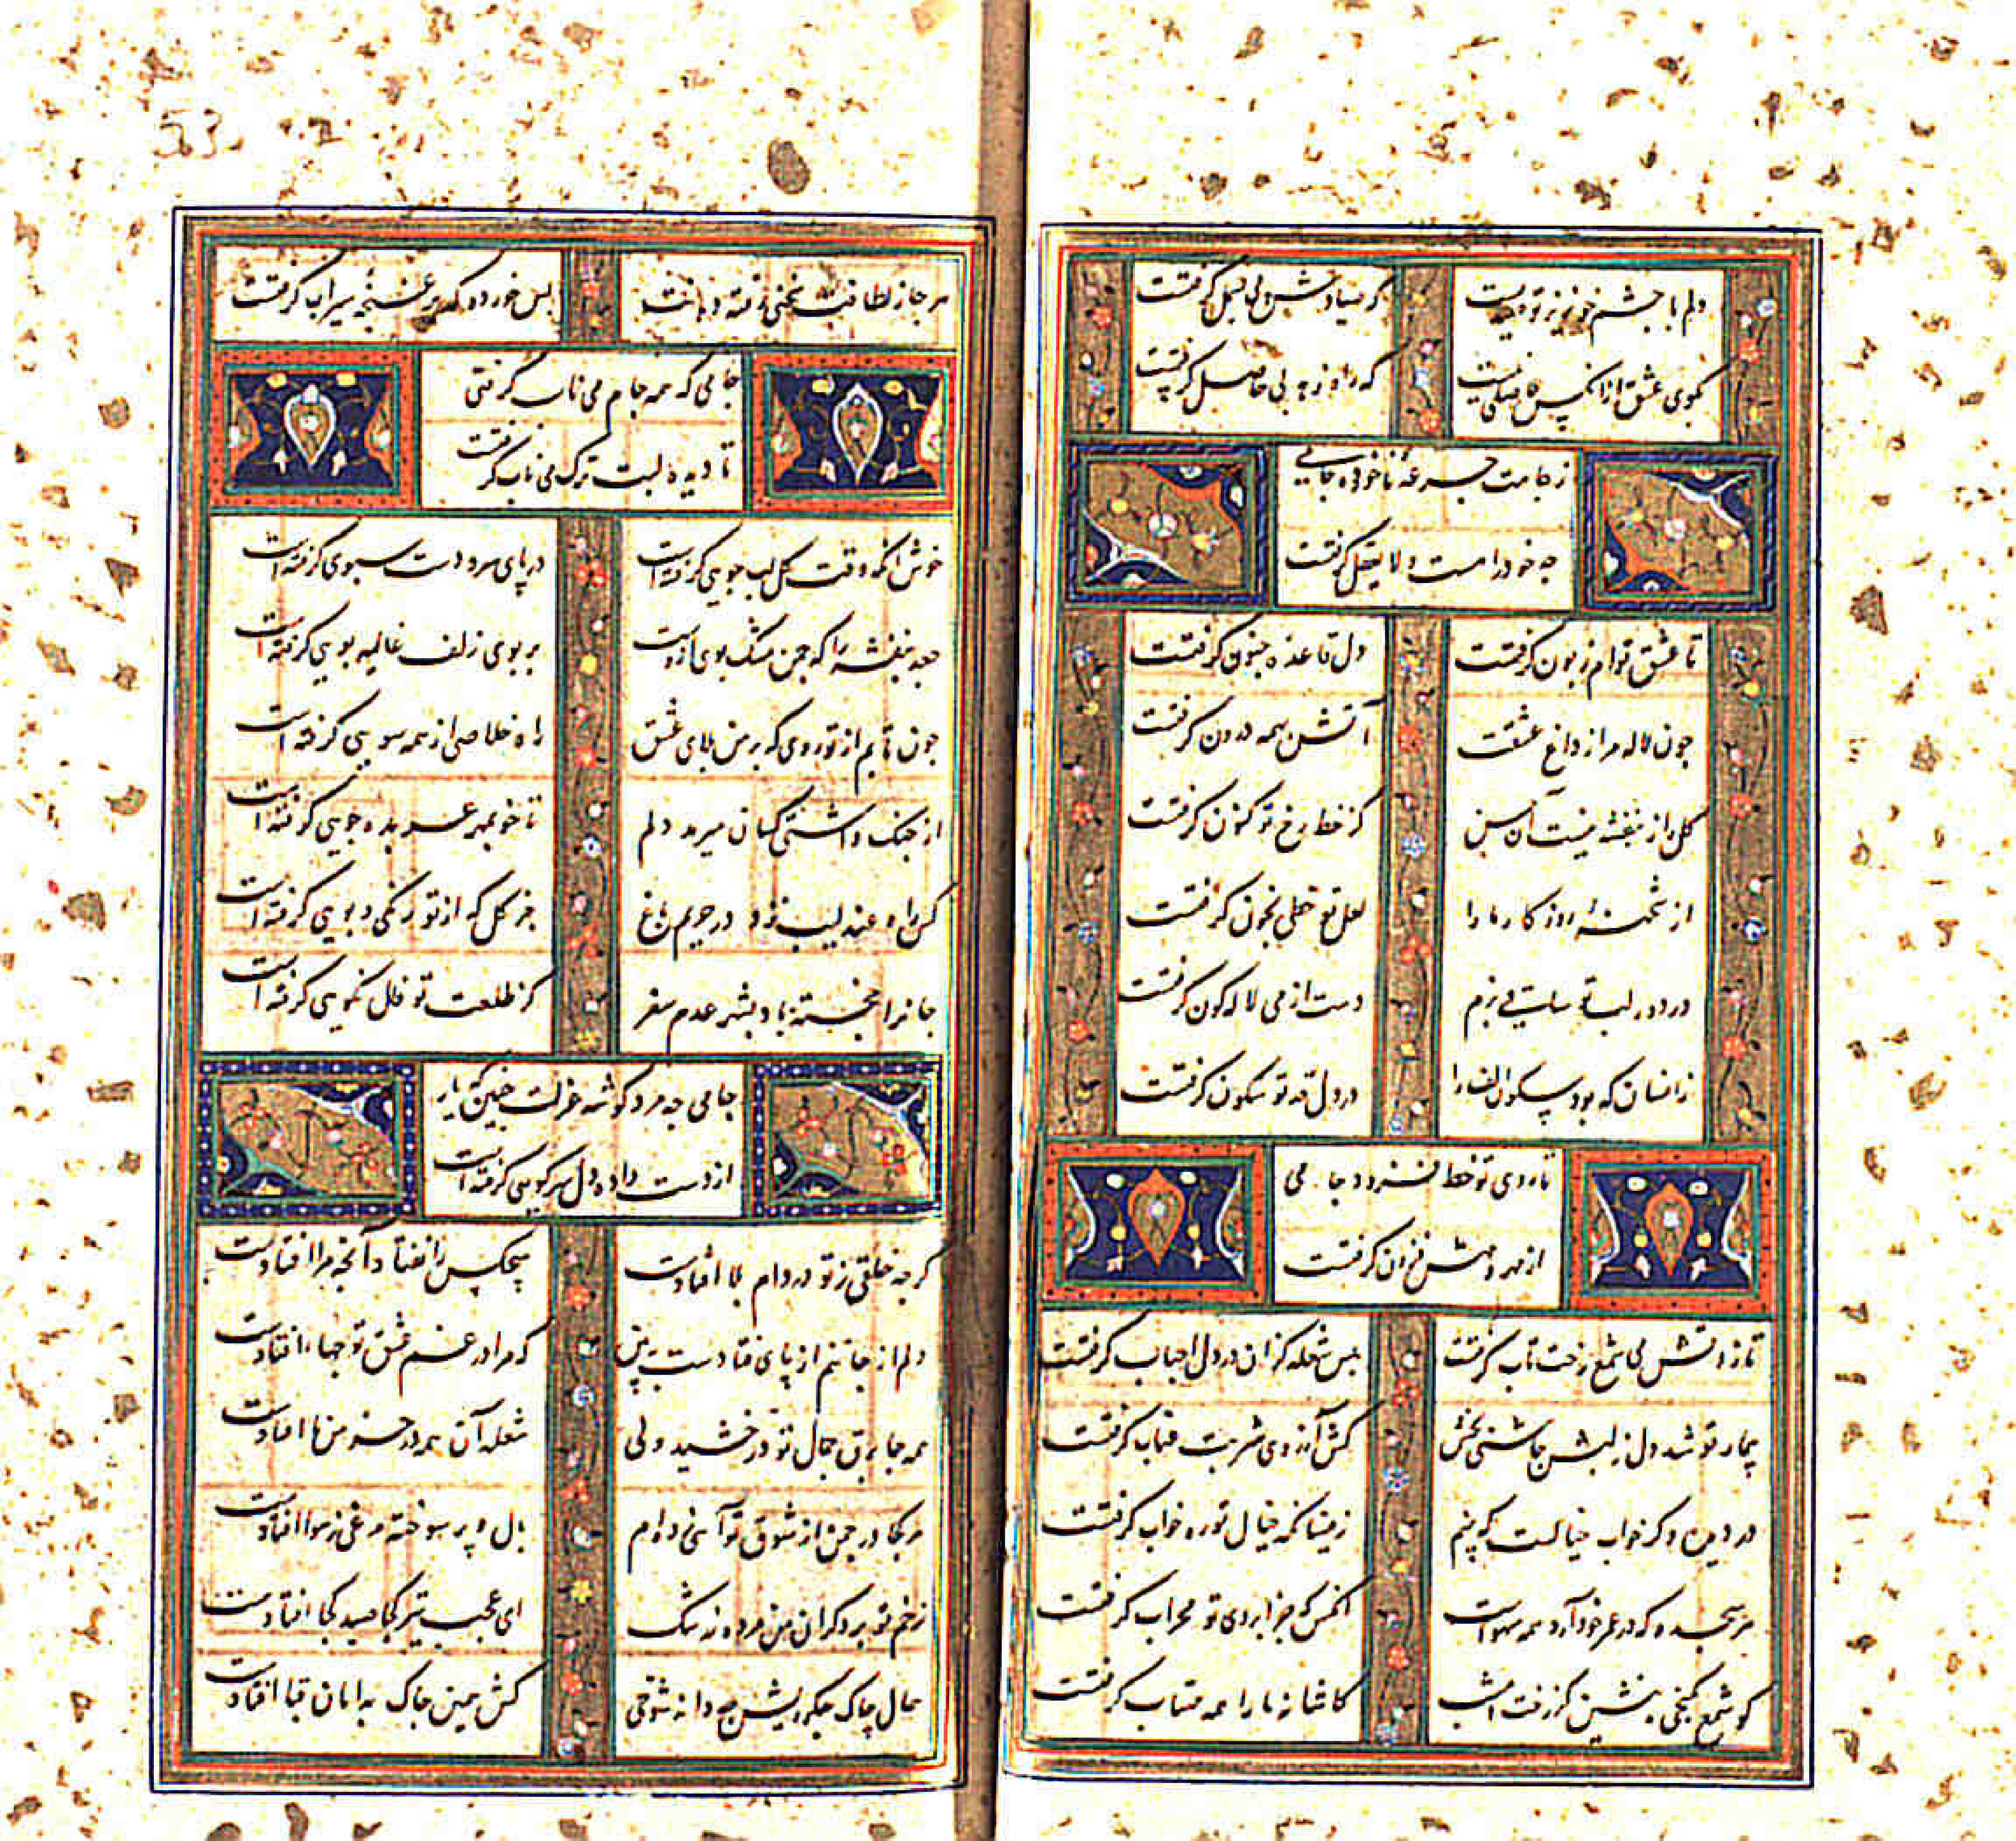 دلم با چشم خونریز تو
که صیاد
بکوی عشق از انکس حاصلی
که راه زهد بی حاصل گرفتست
ز جامت جرعه ناخورده جامی
چه خود را مست و لایعقل گرفتست
تا عشق توام زبون گرفتست
دل قاعده جنون گرفتست
چون لاله مرا ز داغ عشقت
آتش همه درون گرفتست
گل را ز بنفشه نیست آن حسن
کز خط رخ تو کنون گرفتست
از شحنه روزگار ما را
لعل تو خطی بخون گرفتست
در دور لب تو ساقی بزم
دست از می لاله کون گرفتست
زانسان که بود سکون الف را
در دل قد تو سکون گرفتست
تا روی تو خط فزود جامی
از مهر و مهش فزون گرفتست
تا ز آتش می شمع رخت تاب گرفتست
بس شعله کزان در دل احباب گرفتست
بیمار تو شد دل ز لبش چاشنی بخش
کش آرزوی شربت عناب گرفتست
در دیده دگر خواب خیالست که بینم
زینسان که خیال تو ره خواب گرفتست
هر سجده که در عمر خود آرد همه سهوست
انکس که جز ابروی تو محراب گرفتست
گو شمع بکنجی بنشین کز رخت امشب
کاشانه ما را همه مهتاب گرفتست
هر جا ز لطافت سخنی رفته دهانت
بس خورده که بر غنچه سیراب گرفتست
جامی که همه جام می ناب گرفتی
تا دیده لبت ترک می ناب گرفتست
خوش آنکه وقت گل لب جویی گرفته است
در پای سرو دست سبوی گرفته است
جعد بنفشه را که چمن مشک بوی ازوست
بر بوی زلف غالیه بویی گرفته است
چون تابم از تو روی که بر من بلای عشق
راه خلاصی از همه سویی گرفته است
از جنک و آشتی کسان میرمد دلم
تا خو بمهر عربده جویی گرفته است
کی راه عندلیب زند در حریم باغ
جز گل که از تو رنگی و بویی گرفته است
جانرا خجسته باد بشهر عدم سفر
کز طلعت تو فال نکویی گرفته است
جامی چه مرد گوشه عزلت چنین که یار
از دست داده دل سر کویی گرفته است
گرچه خلقی ز تو در دام بلا افتادست
هیچکس را نفتاد آنچه مرا افتادست
دلم از جا تنم از پای فتادست ببین
که مرا در غم عشق تو چها افتادست
همه جا برق جمال تو درخشید ولی
شعله آن همه در خرمن ما افتادست
هر کجا در چمن از شوق تو آهی زده ام
بال و پر سوخته مرغی ز هوا افتادست
زخم تو بر دگران من مرده ز رشک
ای عجب تیر کجا صید کجا افتادست
حال چاک جگر ریش چه داند شوخی
کش همین چاک بدامان قبا افتادست